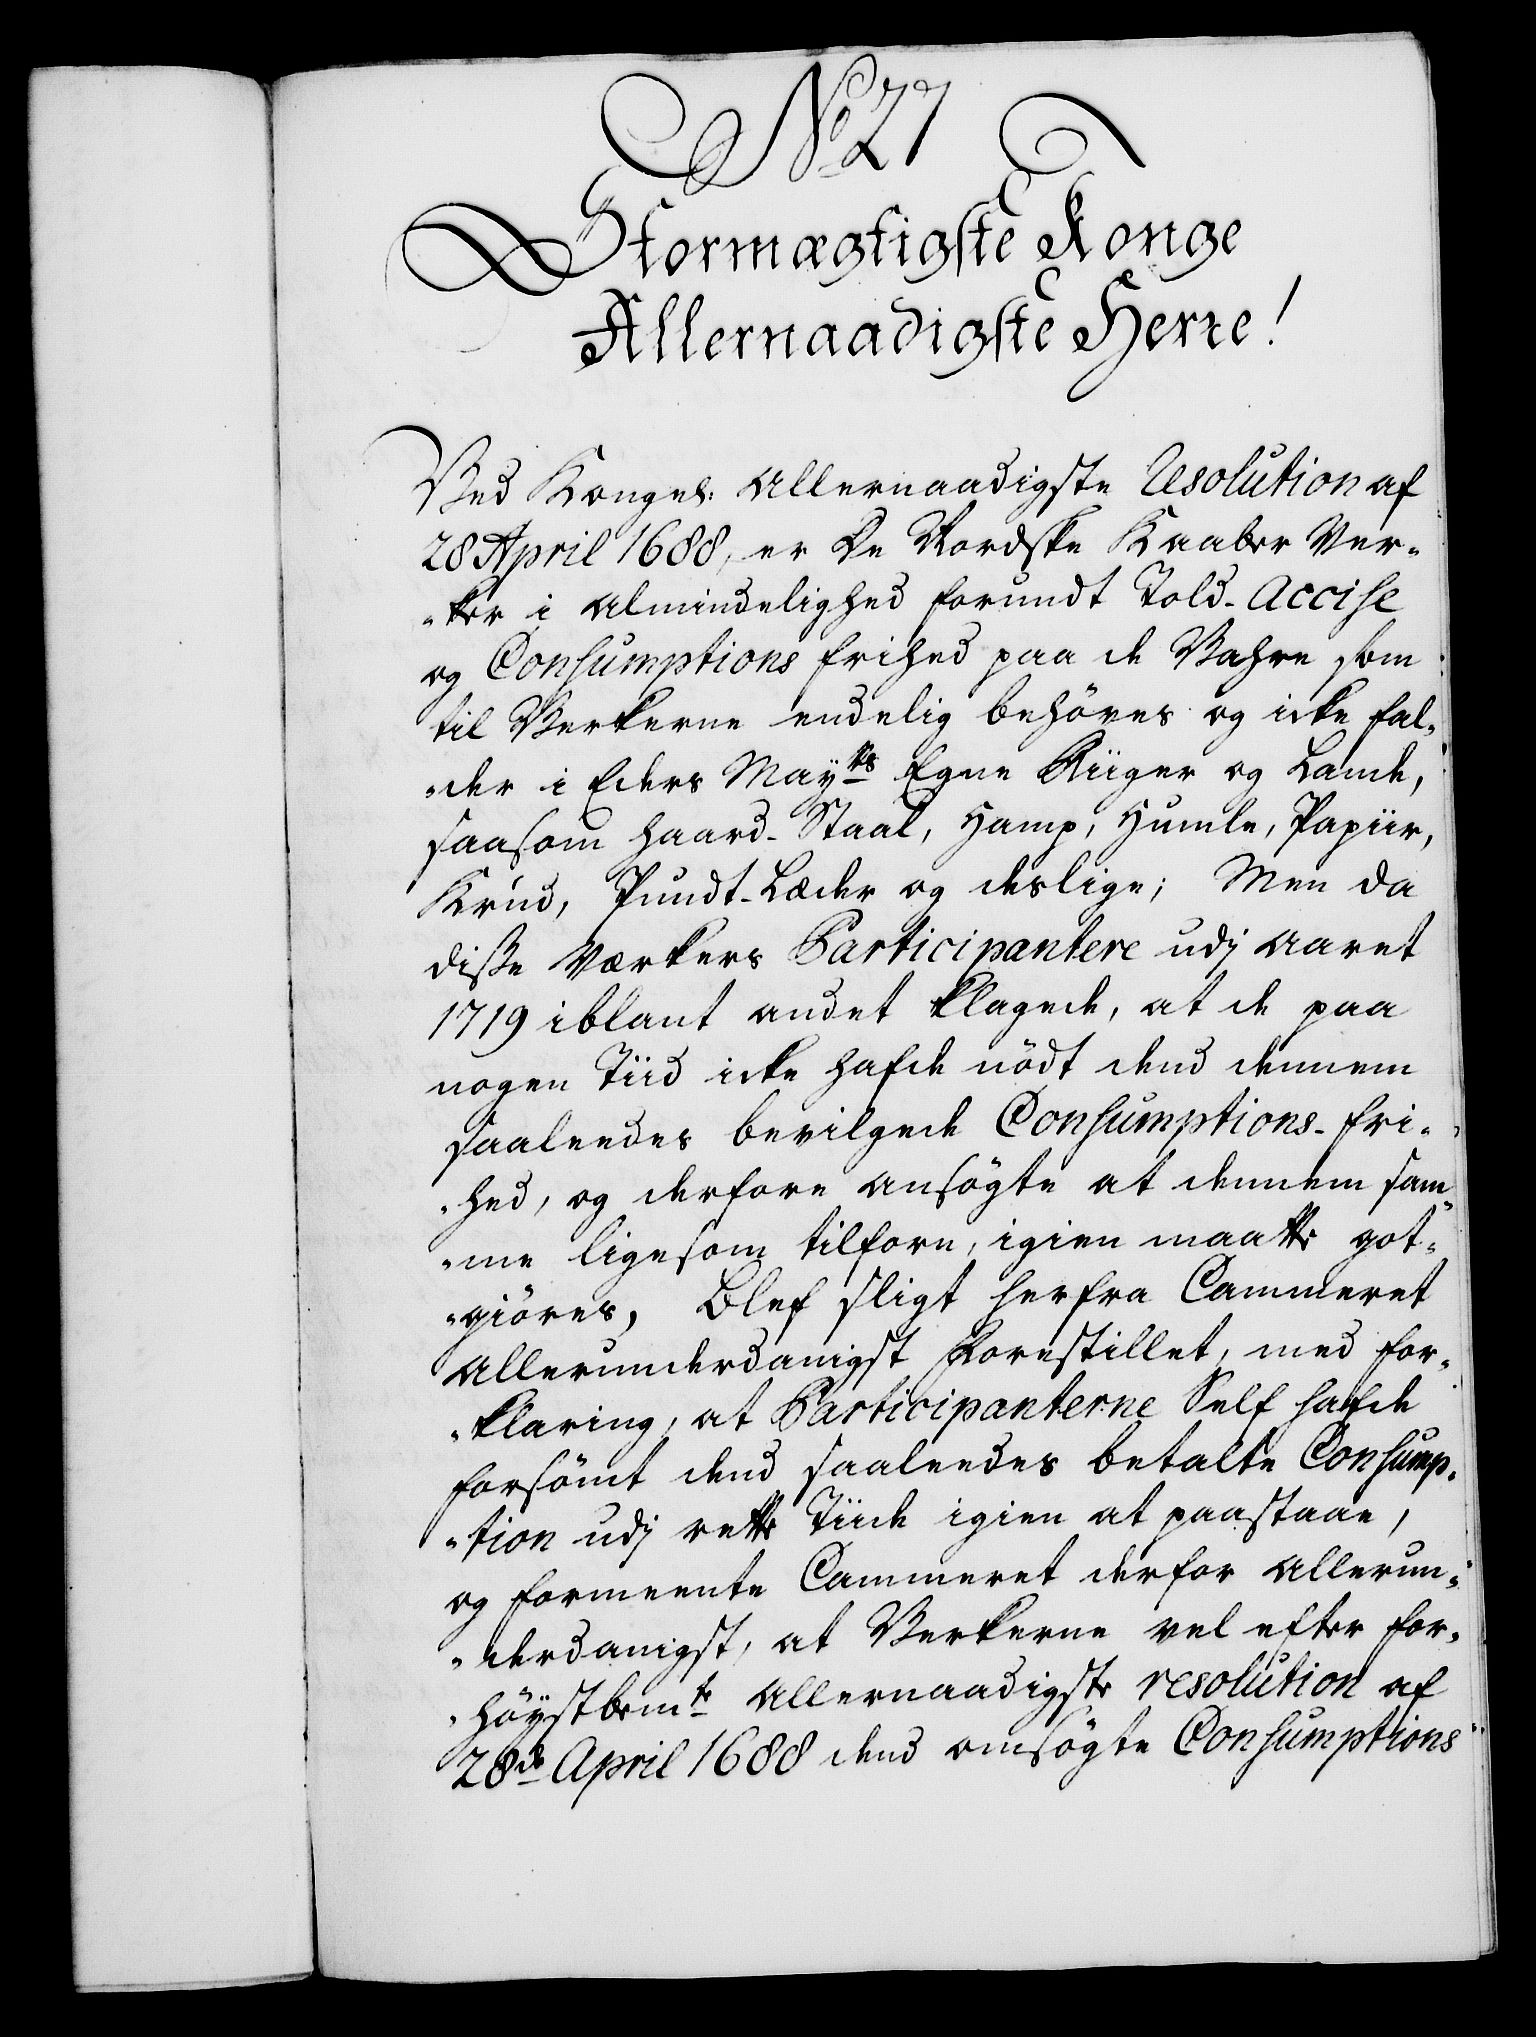 No 27
Stormægtigste Konge
Allernaadigste Herre!
Ved Kongel: Allernaadigste Resolution af
28 April 1688, er De Nordske Kaaber Ver-
-ker i Almindelighed forundt Told- Accise
og Consumptions frihed paa de Vahre som
til Verkerne endelig behöves og icke fal-
-der i Eders Mayts Egne Riiger og Lande,
saasom haard- Staal, Hamp, Humle, Papiir,
Krud, Pundt-Læder og deslige; Men da
disse Værkers Participantere udj Aaret
1719 iblant andet klagede, at de paa
nogen Tiid icke hafde nödt dend dennem
saaleedes bevilgede Consumptions-fri-
-hed, og derfore ansögte at dennem sam-
-me ligesom tilforn, igien maatte got-
-giöres, Blef sligt herfra Cammeret
Allerunderdanigst forestillet, med for-
-klaring, at Participanterne Self hafde
forsömt dend saaleedes betalte Consump-
-tion udj rette Tiide igien at paastaae,
og formeente Cammeret derfor Allerun-
-derdanigst, at Verkerne vel efter for-
-höystbemte Allernaadigste resolution af
28de April 1688 dend omsögte Consumptions